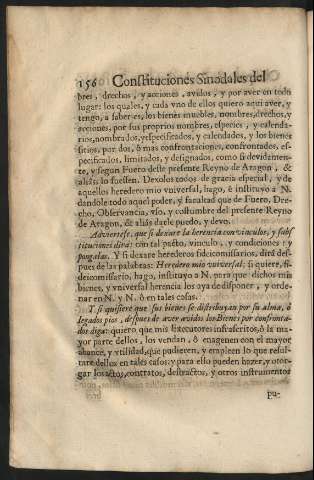 156 Constituciones Sinodales del
bres, drechos, y acciones, avidos, y por aver en todo
lugar: los quales, y cada vno de ellos quiero aqui aver, y
tengo, a saber es, los bienes muebles, nombres, drechos, y
acciones, por sus proprios nombres, especies, y calenda-
rios, nombrados, y especificados, y calendados, y los bienes
sitios, por dos, ò mas confrontaciones, confrontados, es-
pecificados, limitados, y designados, como si devidamen-
te, y segun Fuero deste presente Reyno de Aragon, &
aliàs lo fuessen. Dexolos todos de gracia especial, y de
aquellos heredero mio vniversal, hago, è instituyo à N.
dandole todo aquel poder, y facultad que de Fuero, De-
cho, Observancia, vso, y costumbre del presente Reyno
de Aragon, & aliàs darle puedo, y devo.
Adviertese, que si dexare la herencia con vinculos, y subs-
tituciones dirà: con tal pacto, vinculo, y condiciones: y
pongalas. Y si dexare herederos fideicomissarios, dirà des-
pues de las palabras: Heredero mio vniversal; si quiere, fi-
deicomissario, hago, instituyo a N. para que dichos mis
bienes, y vniversal herencia los aya de disponer, y orde-
nar en N. y N. ò en tales cosas.
Y si quisiere que sus bienes se distribuyan por su alma, ò
legados pios, despues de aver avidos los Bienes por confronta-
dos diga: quiero que mis Executores infrascritos, ò la ma-
yor parte dellos, los vendan, ò enagenen con el mayor
abance, y vtilidad, que pudieren, y empleen lo que resul-
tare dellos en tales cosas: y para ello pueden hazer, y otor-
gar los actos, contratos, destractos, y otros instrumentos
pu-